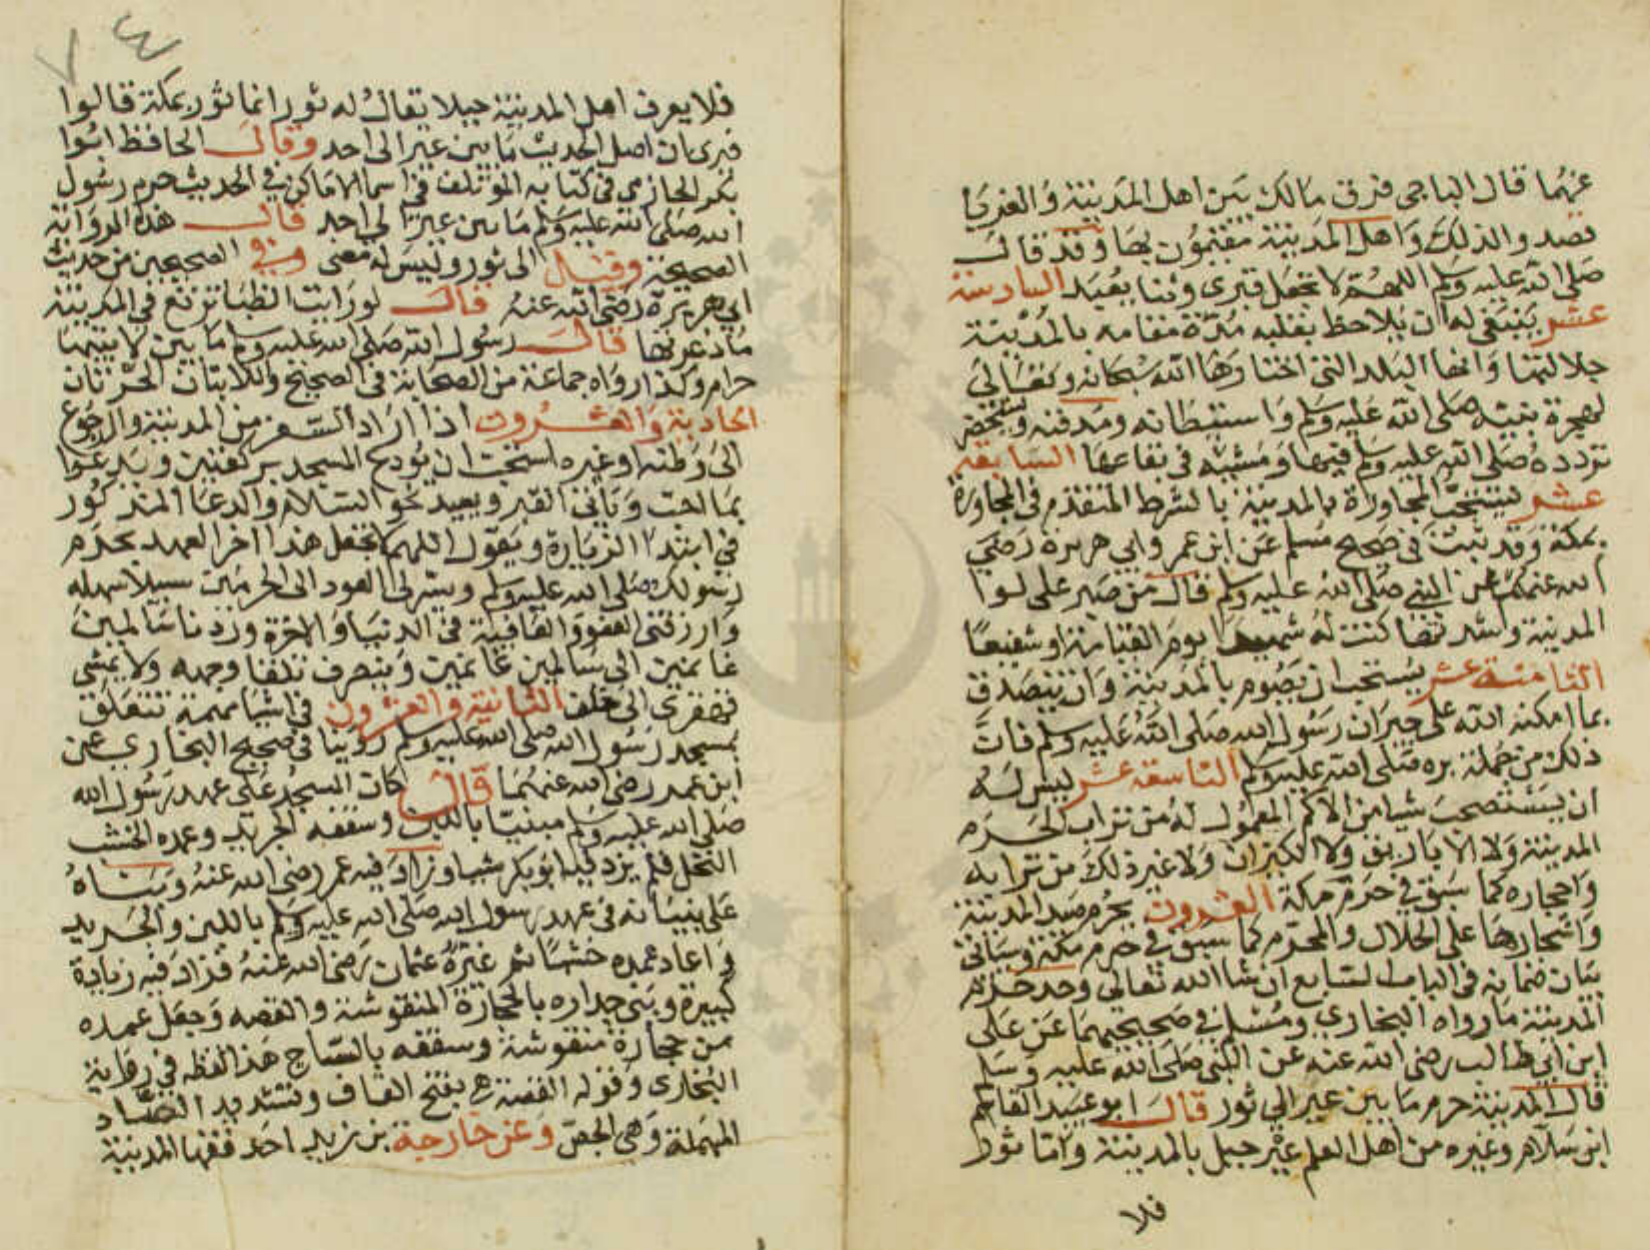 عنهما قال الباجي فرق مالك بين اهل المدينة والغربا
قصدوا لذلك واهل المدينة مقيمون بها وقد قال
صلى الله عليه وسلم اللهم لا تجعل قبري وثنا يعبد السادسة
عشر ينبغي له ان يلاحظ بقلبه مدة مقامه بالمدينة
جلالتها وانها البلد التي اختارها الله سبحانه وتعالى
لهجرة نبيه صلى الله عليه وسلم واستيطانه ومدفنه ويستحضر
تردده صلى الله عليه وسلم فيها ومشيه في بقاعها السابعة
عشر يستحب المجاورة بالمدينة بالشرط المتقدم في المجاورة
بمكة وقد ثبت في صحيح مسلم عن ابن عمر وابي هريرة رضي
الله عنهم عن النبي صلى الله عليه وسلم قال من صبر على لاوا
المدينة وشدتها كنت له شهيدا يوم القيامة او شفيعا
الثامنة عشر يستحب ان يصوم بالمدينة وان يتصدق
بما امكنه الله على جيران رسول الله صلى الله عليه وسلم فان
ذلك من جملة بره صلى الله عليه وسلم التاسعة عشر ليس له
ان يستصحب شيا من الاكر المعمول له من تراب الحرم
المدينة ولا الاباريق ولا الكيزان ولا غير ذلك من ترابه
واحجاره كما سبق في حرم مكة العشرون يحرم صيد المدينة
واشجارها على الحلال والمحرم كما سبق في حرم مكة وسياتي
بيان ضمانه في الباب السابع ان شا الله تعالى وحد حرم
المدينة ما رواه البخاري ومسلم في صحيحيهما عن على
ابن ابي طالب رضى الله عنه عن النبي صلى الله عليه وسلم
قال المدينة حرم ما بين عير الي ثور قال ابو عبيد القاسم
ابن سلام وغيره من اهل العلم عير جبل بالمدينة واما ثور
فلا
فلا يعرف اهل المدينة جبلا يقال له ثور انما ثور بمكة قالوا
فنرى ان اصل الحديث ما بين عير الى احد وقال الحافظ ابوا
بكر الحازمي في كتابه المؤتلف في اسما الاماكن في الحديث حرم رسول
الله صلى الله عليه وسلم ما بين عير الي احد قال هذه الرواية
الصحيحة وقيل الى ثور وليس له معنى وفي الصحيحين من حديث
ابي هريرة رضى الله عنه قال لو رايت الظبا ترتع في المدينة
ما ذعرتها قال رسول الله صلى الله عليه وسلم ما بين لابتيها
حرام وكذا رواه جماعة من الصحابة في الصحيح واللابتان الحرتان
الحادية والعشرون اذا اراد السفر من المدينة والرجوع
الى وطنه او غيره استحب ان يودع المسجد بركعتين ويدعوا
بما احب وياتي القبر ويعيد نحو السلام والدعا المذكور
في ابتدا الزيارة ويقول اللهم لا تجعل هذا اخر العهد بحرم
رسولك صلى الله عليه وسلم ويسر لي العود الى الحرمين سبيلا سهلة
وارزقني العفو والعافية في الدنيا والاخرة وردنا سالمين
غانمين الى سالمين غانمين وينصرف تلقا وجهه ولا يمشي
قهقرى الى خلف الثانية والعشرون في اشيا مهمة تتعلق
بمسجد رسول الله صلى الله عليه وسلم روينا في صحيح البخاري عن
ابن عمر رضي الله عنهما قال كان المسجد على عهد رسول الله
صلى الله عليه وسلم مبنيا باللبن وسقفه الجريد وعمده الخشب
النخل فلم يزد فيه ابو بكر شيا وزاد فيه عمر رضى الله عنه وبناه
على بنيانه في عهد رسول الله صلى الله عليه وسلم باللبن والجريد
واعاد عمده خشبا ثم غيره عثمان رضى الله عنه فزاد فيه زيادة
كبيرة وبنى جداره بالحجارة المنقوشة والقصه وجعل عمده
من حجارة منقوشة وسقفه بالساج هذا لفظه في رواية
البخاري وقوله القصة هي بفتح القاف وتشديد الصاد
المهملة وهي الجص وعن خارجة بن زيد احد فقها المدينة